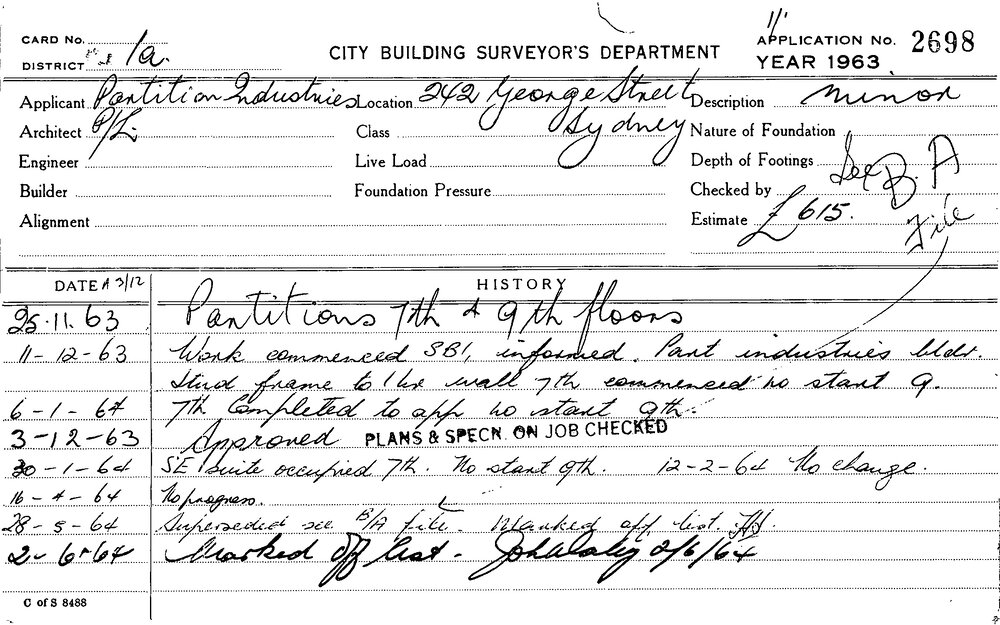 CARD No.
DISTRICT 1a.
CITY BUILDING SURVEYOR'S DEPARTMENT
APPLICATION No. 2698
YEAR 1963
Applicant Partition Industries P/L. Location 242 George Street Sydney Description Minor
Architect Class Nature of Foundation
Engineer Live Load Depth of Footings
Builder Foundation Pressure Checked by
Alignment Estimate £615.
See B.A File
DATE A 3/12 HISTORY
25.11.63 Partitions 7th & 9th floors
11-12-63 Work commenced SBI, informed. Part industries bldr.
Stud frame to 1 hr wall 7th commenced no start 9.
6-1-64 7th Completed to app no start 9th.
3-12-63 Approved PLANS & SPECN. ON JOB CHECKED
30-1-64 SE suite occupied 7th. No start 9th. 12-2-64 No change.
16-4-64 No progress.
28-5-64 Superseded see B/A file. Marked off list.
2-6-64 Marked off list - 2/6/64
C of S 8488